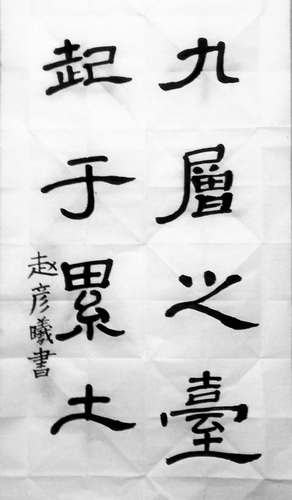 九層之臺
起于累土
赵彦曦書